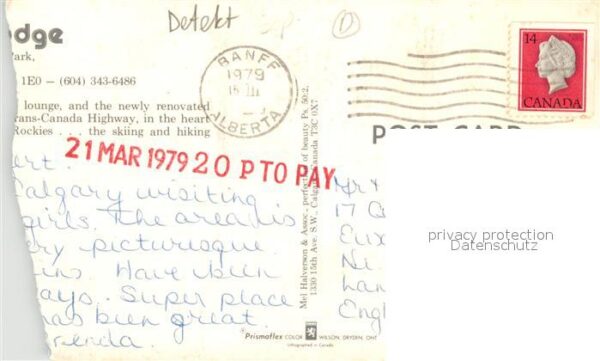 Detekt
D
dge
Park,
1E0 – (604) 343-6486
lounge, and the newly renovated
rans-Canada Highway, in the heart
Rockies . . . the skiing and hiking
BANFF
1979
15 III
ALBERTA
14
CANADA
POST CARD
21 MAR 1979 20 P TO PAY
ert.
Calgary visiting
girls. The area is
ery picturesque
ins. Have been
ays. Super place
as been great.
renda.
Mel Halverson & Assoc., perfection of beauty, Ps. 50:2,
1330 15th Ave. S.W., Calgary, Canada T3C 0X7
Prismaflex COLOR WILSON, DRYDEN, ONT
Lithographed in Canada
Mr &
17 C
Eux
Ni.
Lan
Engl
privacy protection
Datenschutz